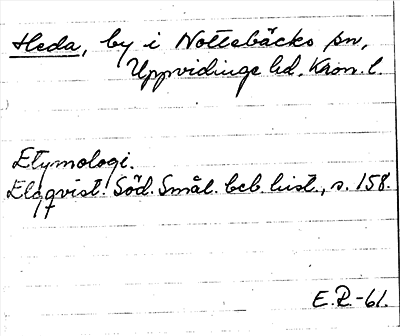 Heda, by i Nottebäcks sn,
Uppvidinge hd, Kron. l.
Etymologi.
Elqvist: Söd. Smål. beb. hist., s. 158.
E.R.-61.